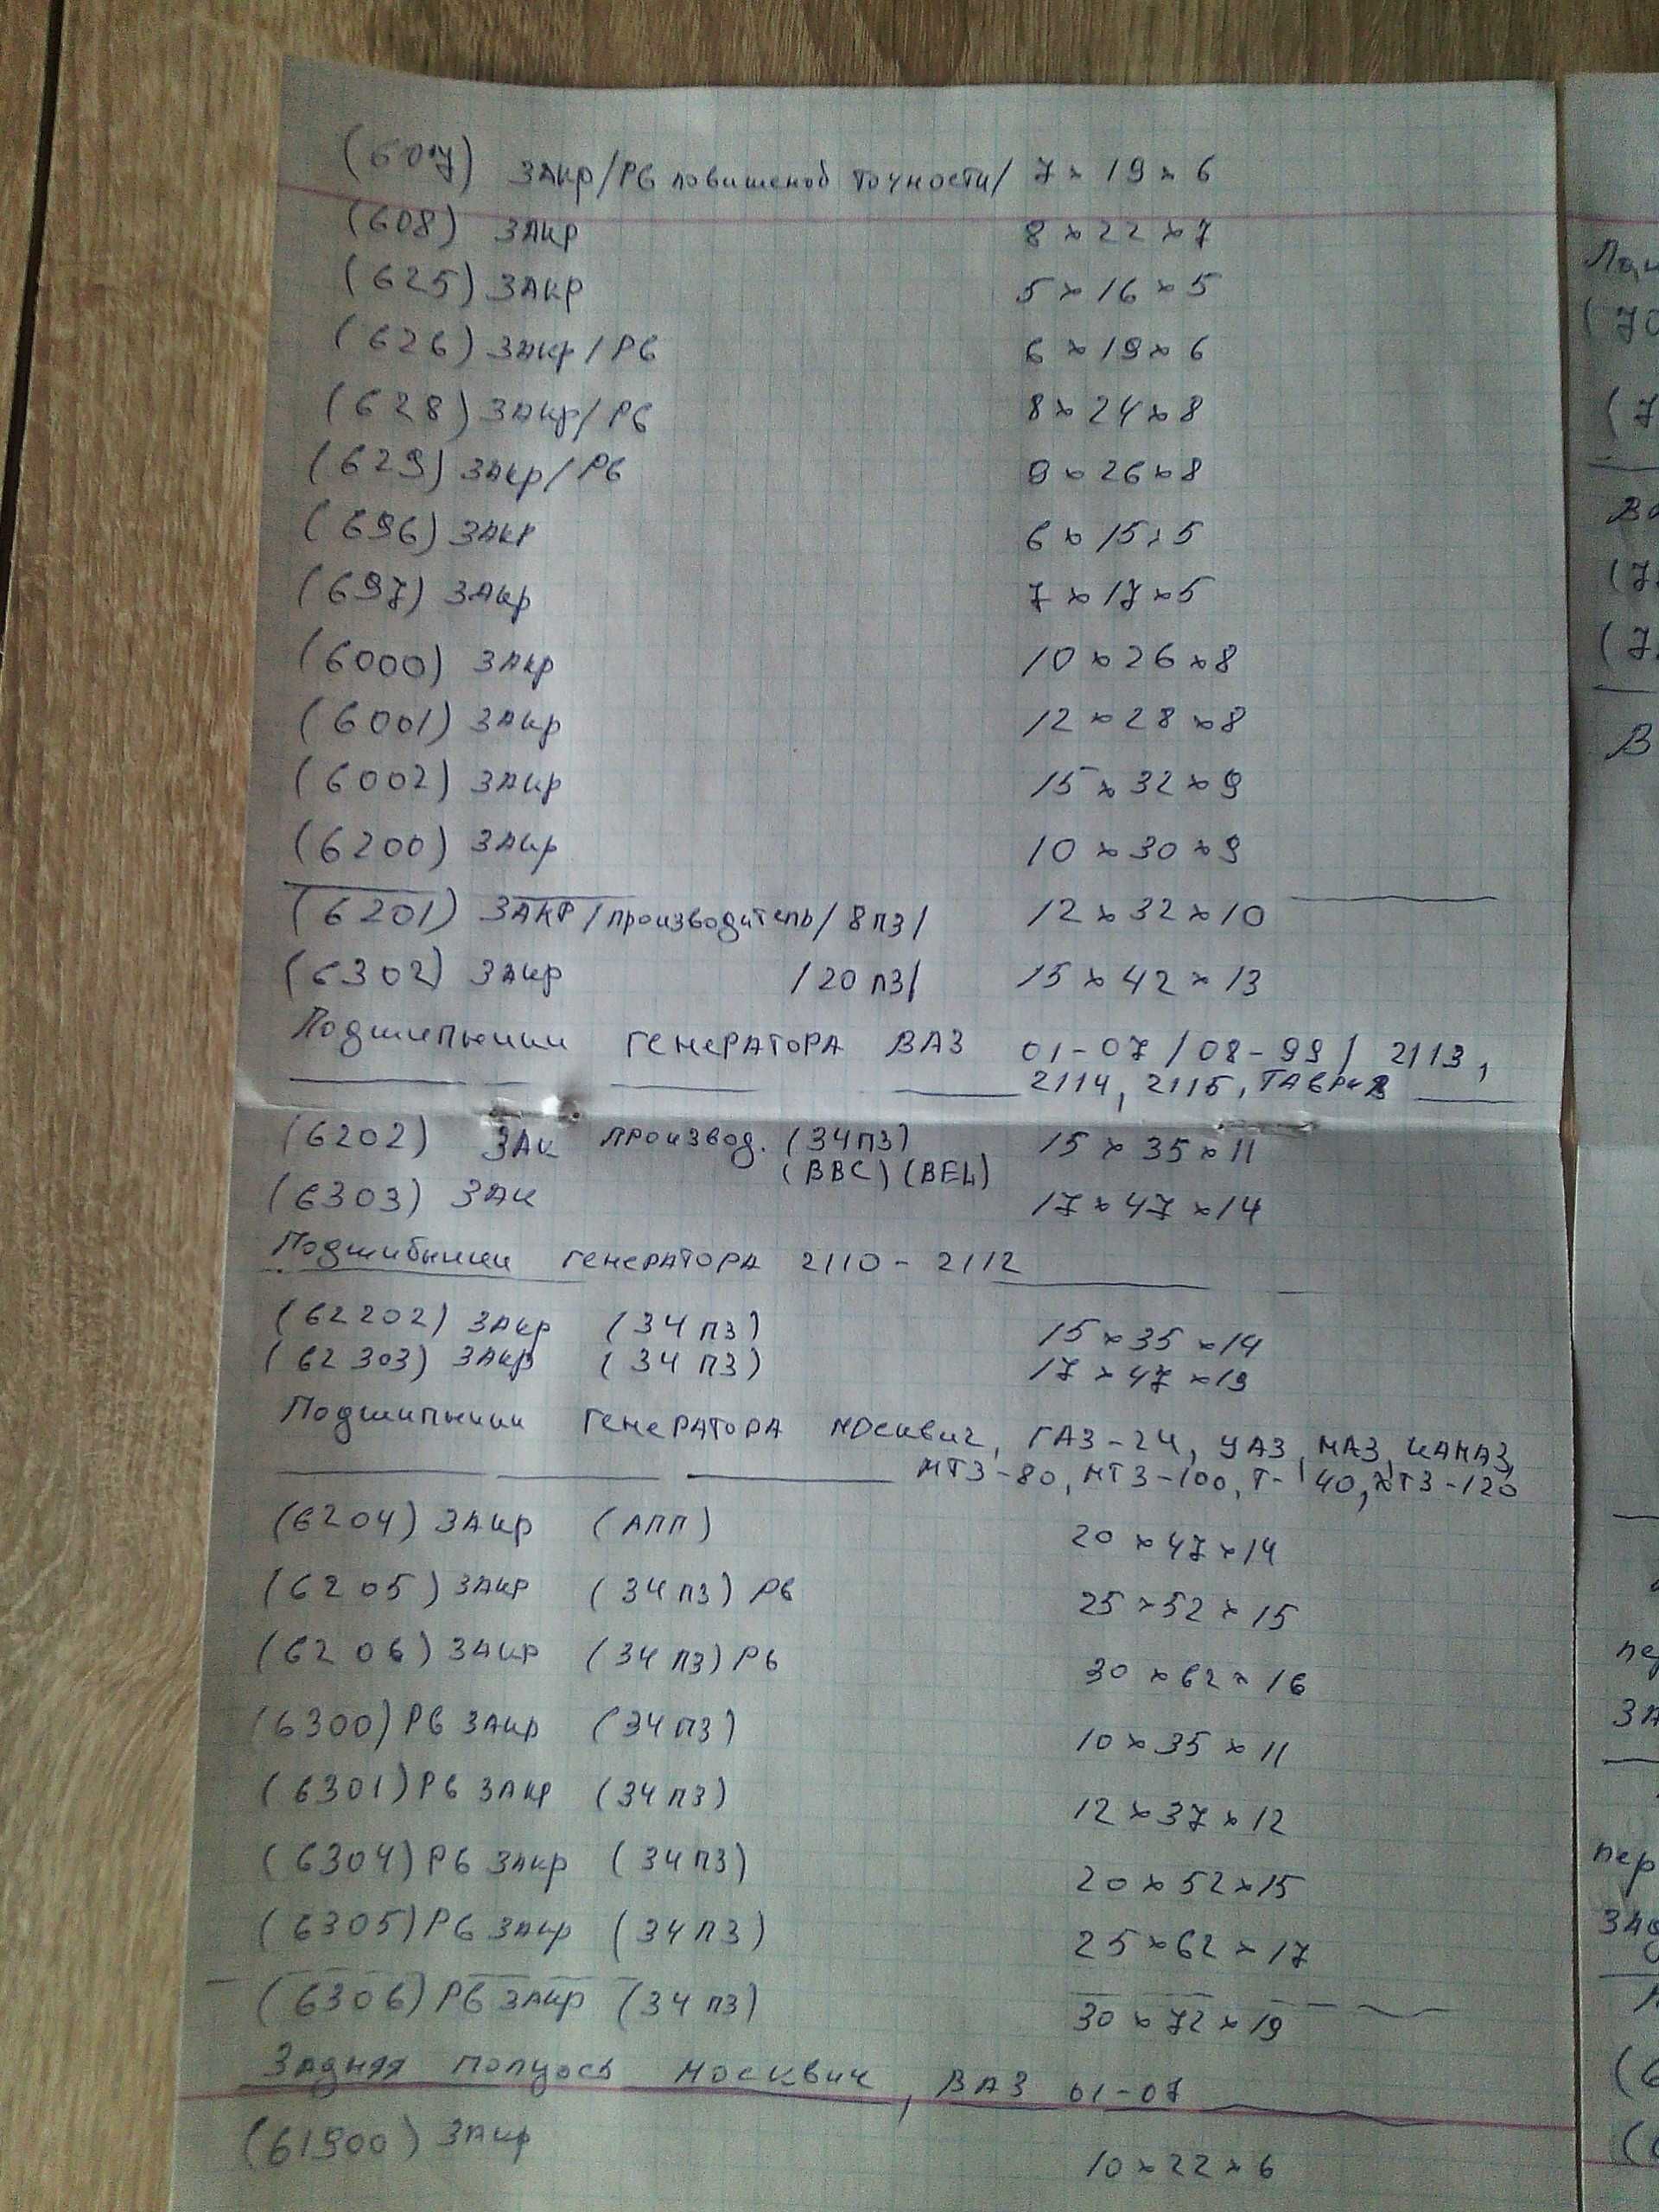 (607) ЗАКР/РБ повишеноб точности/ 7 × 19 × 6
(608) ЗАКР 8 × 22 × 7
(625) ЗАКР 5 × 16 × 5
(626) ЗАКР/РБ 6 × 19 × 6
(628) ЗАКР/РБ 8 × 24 × 8
(629) ЗАКР/РБ 9 × 26 × 8
(696) ЗАКР 6 × 15 × 5
(697) ЗАКР 7 × 17 × 5
(6000) ЗАКР 10 × 26 × 8
(6001) ЗАКР 12 × 28 × 8
(6002) ЗАКР 15 × 32 × 9
(6200) ЗАКР 10 × 30 × 9
(6201) ЗАКР/производитель/8ПЗ/ 12 × 32 × 10
(6302) ЗАКР /20 ПЗ/ 15 × 42 × 13
Подшипники ГЕНЕРАТОРА ВАЗ 01-07/08-99/ 2113,
2114, 2115, ТАВРИЯ
(6202) ЗАК производ. (34ПЗ) 15 × 35 × 11
(BBC) (BEL)
(6303) ЗАК 17 × 47 × 14
Подшибники ГЕНЕРАТОРА 2110 - 2112
(62202) ЗАКР (34 ПЗ) 15 × 35 × 14
(62303) ЗАКР (34 ПЗ) 17 × 47 × 19
Подшипники ГЕНЕРАТОРА МОСКВИЧ, ГАЗ-24, УАЗ, МАЗ, КАМАЗ,
МТЗ-80, МТЗ-100, Т-140, ХТЗ-120
(6204) ЗАКР (АПП) 20 × 47 × 14
(6205) ЗАКР (34 ПЗ) РБ 25 × 52 × 15
(6206) ЗАКР (34 ПЗ) РБ 30 × 62 × 16
(6300) РБ ЗАКР (34 ПЗ) 10 × 35 × 11
(6301) РБ ЗАКР (34 ПЗ) 12 × 37 × 12
(6304) РБ ЗАКР (34 ПЗ) 20 × 52 × 15
(6305) РБ ЗАКР (34 ПЗ) 25 × 62 × 17
(6306) РБ ЗАКР (34 ПЗ) 30 × 72 × 19
Задняя полуось Москвич, ВАЗ 01-07
(61900) ЗАКР 10 × 22 × 6